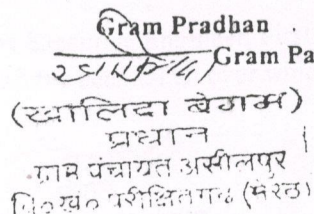 Gram Pradhan
Gram Pa
(खालिदा बेगम)
प्रधान
ग्राम पंचायत असीलपुर
वि०ख० परीक्षितगढ (मेरठ)